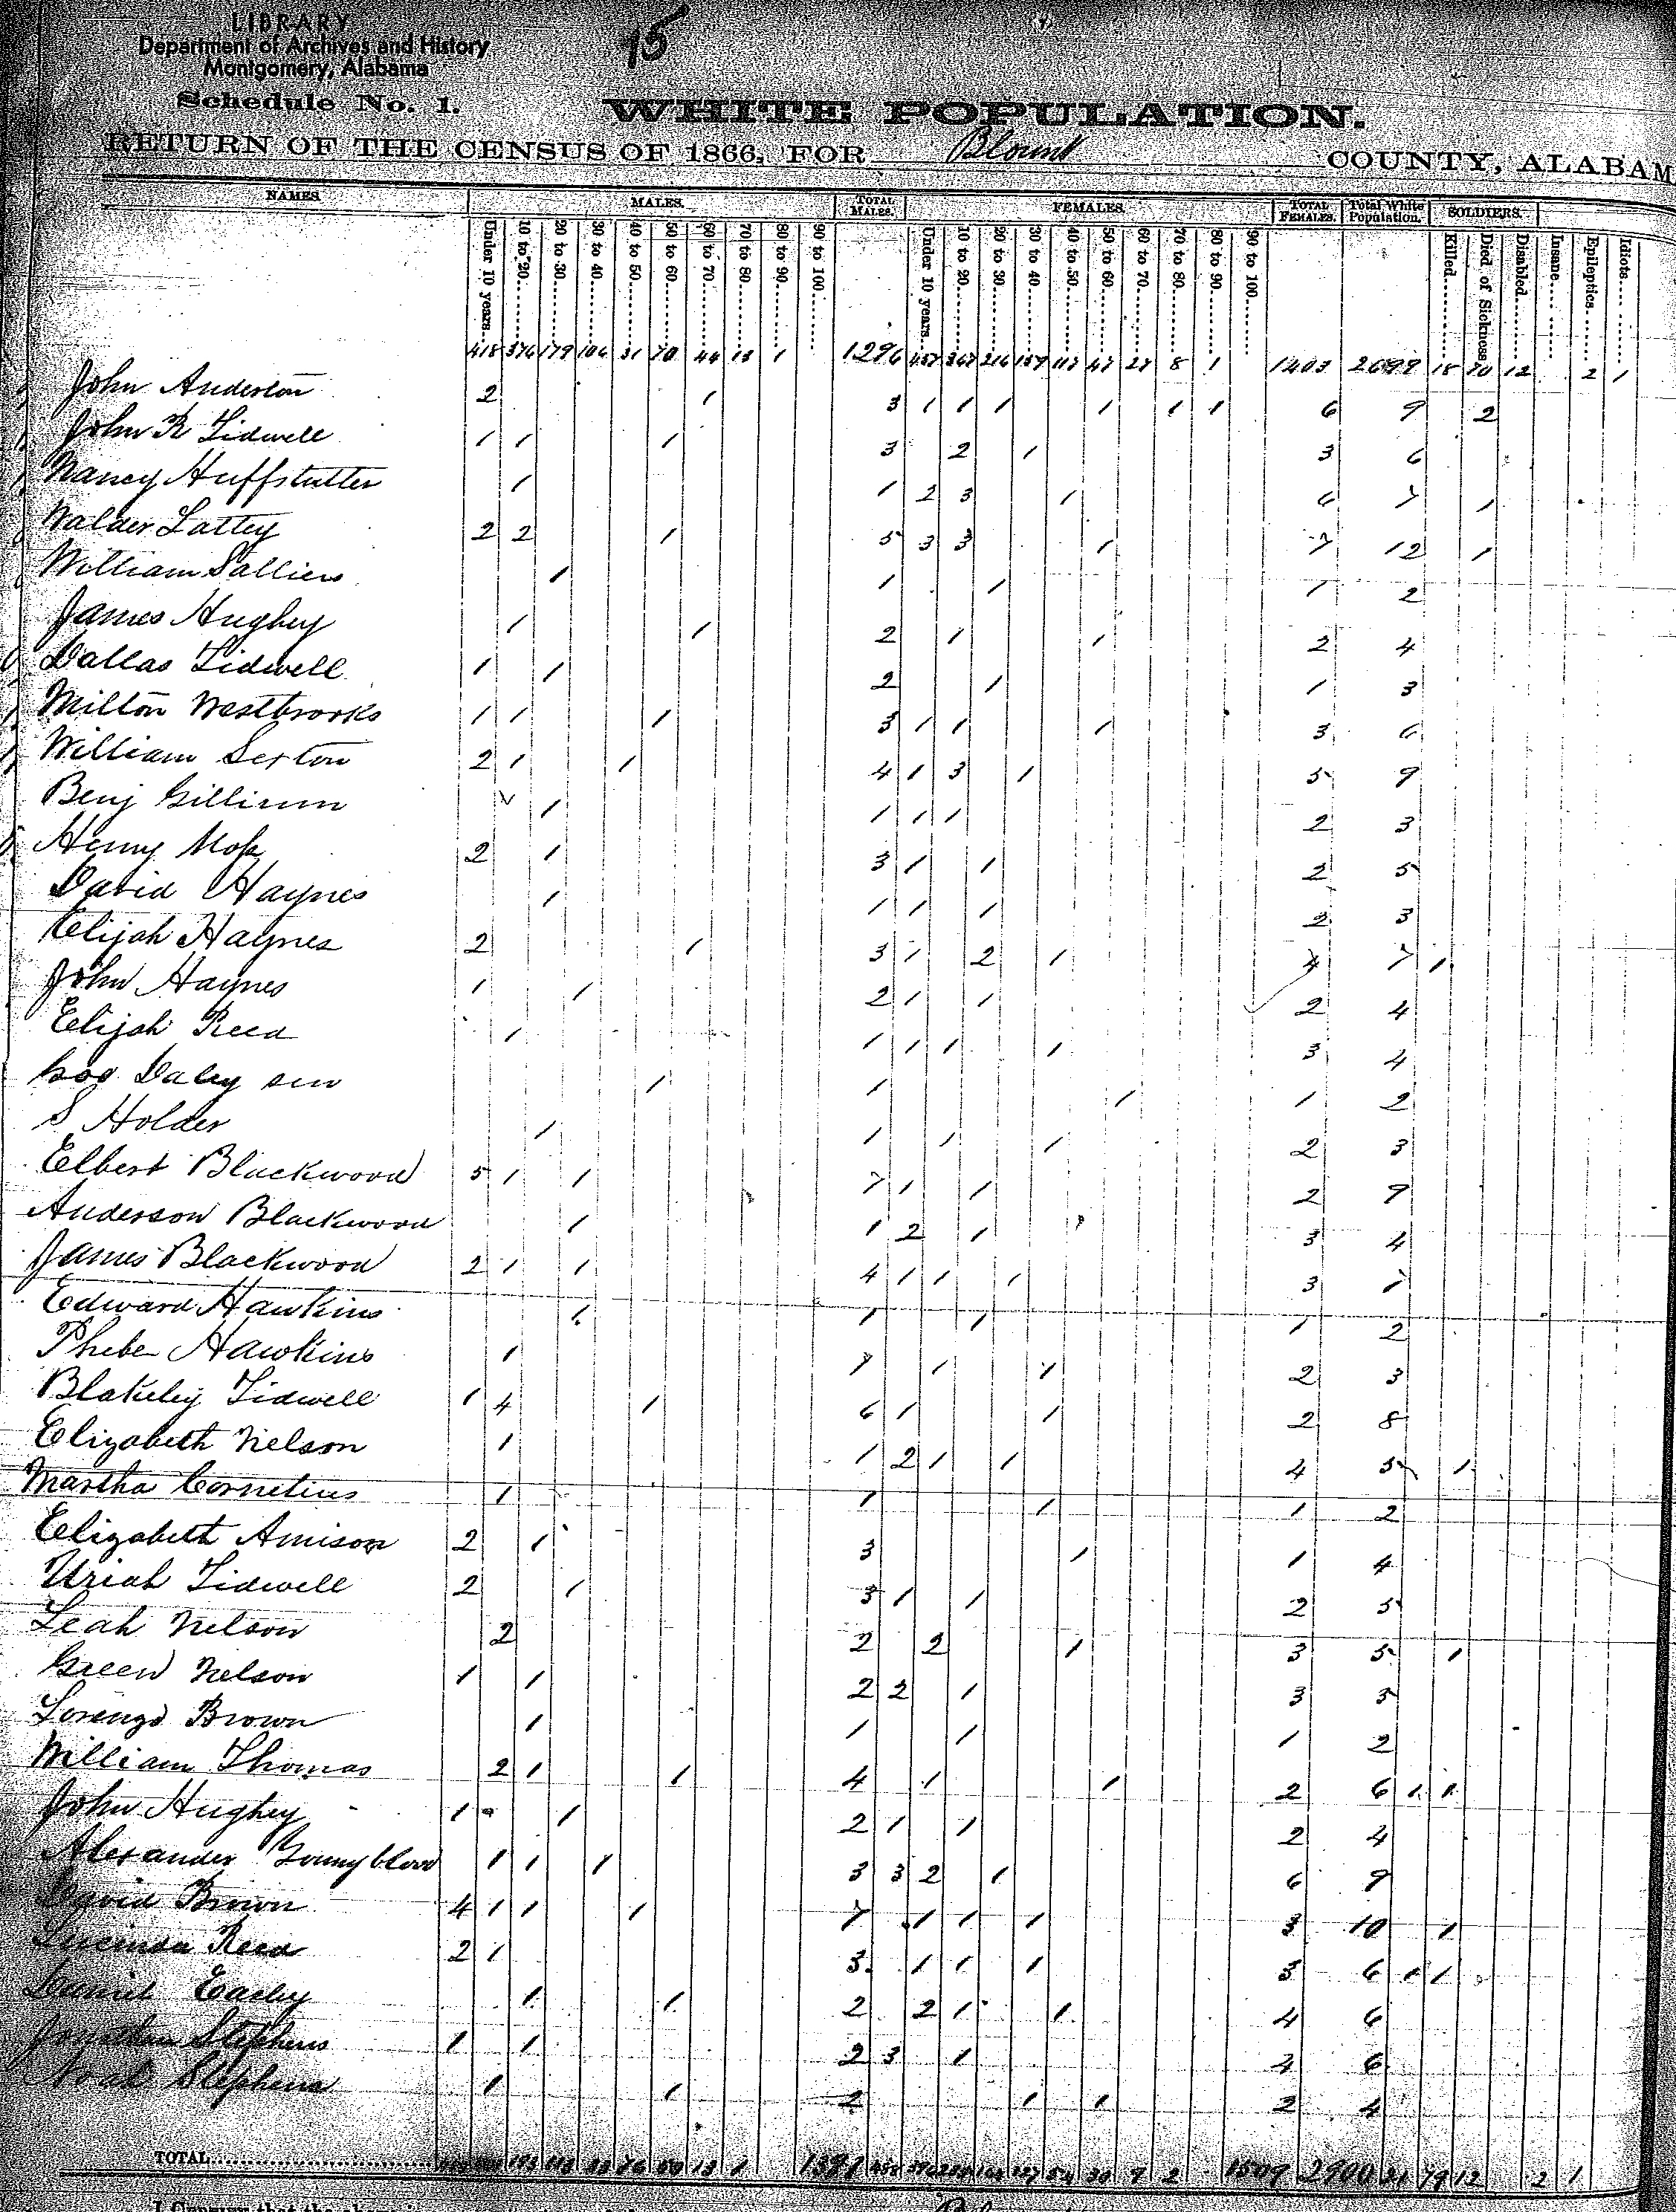 LIBRARY
Department of Archives and History
Montgomery, Alabama
15
Schedule No. 1.
WHITE POPULATION.
RETURN OF THE CENSUS OF 1866, FOR Blount COUNTY, ALABAM
NAMES. MALES. TOTAL MALES. FEMALES. TOTAL FEMALES. Total White Population. SOLDIERS.
Under 10 years. 10 to 20. 20 to 30. 30 to 40. 40 to 50. 50 to 60. 60 to 70. 70 to 80. 80 to 90. 90 to 100. Under 10 years. 10 to 20. 20 to 30. 30 to 40. 40 to 50. 50 to 60. 60 to 70. 70 to 80. 80 to 90. 90 to 100. Killed. Died of Sickness. Disabled. Insane. Epileptics. Idiots.
418 376 179 106 70 44 13 1 1296 216 8 1 1403 2699 18 70 12 2 1
John Anderton 2 1 3 1 1 1 1 1 1 6 9 2
John R Tidwell 1 1 1 3 2 1 3 6
Nancy Huffstutter 1 1 2 3 1 6 7 1
Lattey 2 2 1 5 3 3 1 7 12 1
William 1 1 1 1 2
James Hughey 1 1 2 1 1 2 4
Dallas Tidwell 1 1 2 1 1 3
Milton Westbrooks 1 1 1 3 1 1 1 3 6
William Sexton 2 1 1 4 1 3 1 5 9
Benj Gillium 1 1 1 1 2 3
Henry 2 1 3 1 1 2 5
David Haynes 1 1 1 1 2 3
Elijah Haynes 2 1 3 1 2 1 4 7 1
John Haynes 1 1 2 1 1 2 4
Elijah Reed 1 1 1 1 1 3 4
Daley 1 1 1 1 2
S Holder 1 1 1 1 2 3
Elbert Blackwood 5 1 1 7 1 1 2 9
Anderson Blackwood 1 1 2 1 3 4
James Blackwood 2 1 1 4 1 1 1 3 7
Edward Hawkins 1 1 1 1 2
Phebe Hawkins 1 1 1 1 2 3
Blakeley Tidwell 1 4 1 6 1 1 2 8
Elizabeth Nelson 1 1 2 1 1 4 5 1
Martha Cornelius 1 1 1 1 2
Elizabeth Amison 2 1 3 1 1 4
Uriah Tidwell 2 1 3 1 1 2 5
Leah Nelson 2 2 2 1 3 5 1
Green Nelson 1 1 2 2 1 3 5
Lorenzo Brown 1 1 1 1 2
William Thomas 2 1 1 4 1 1 2 6 1 1
John Hughey 1 1 2 1 1 2 4
Alexander Youngblood 1 1 1 3 3 2 1 6 9
David Brown 4 1 1 1 7 1 1 1 3 10 1
Lucinda Reed 2 1 3 1 1 1 3 6 1 1
Daniel 1 1 2 2 1 1 4 6
Jonathan Stephens 1 1 2 3 1 4 6
Noah Stephens 1 1 2 1 1 2 4
TOTAL 13 1 30 9 2 1509 2900 21 79 12 2 1